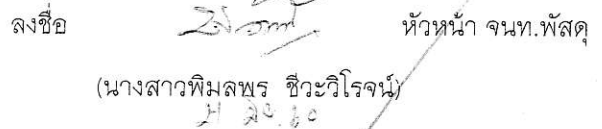 ลงชื่อ หัวหน้า จนท.พัสดุ
(นางสาวพิมลพร ชีวะวิโรจน์)